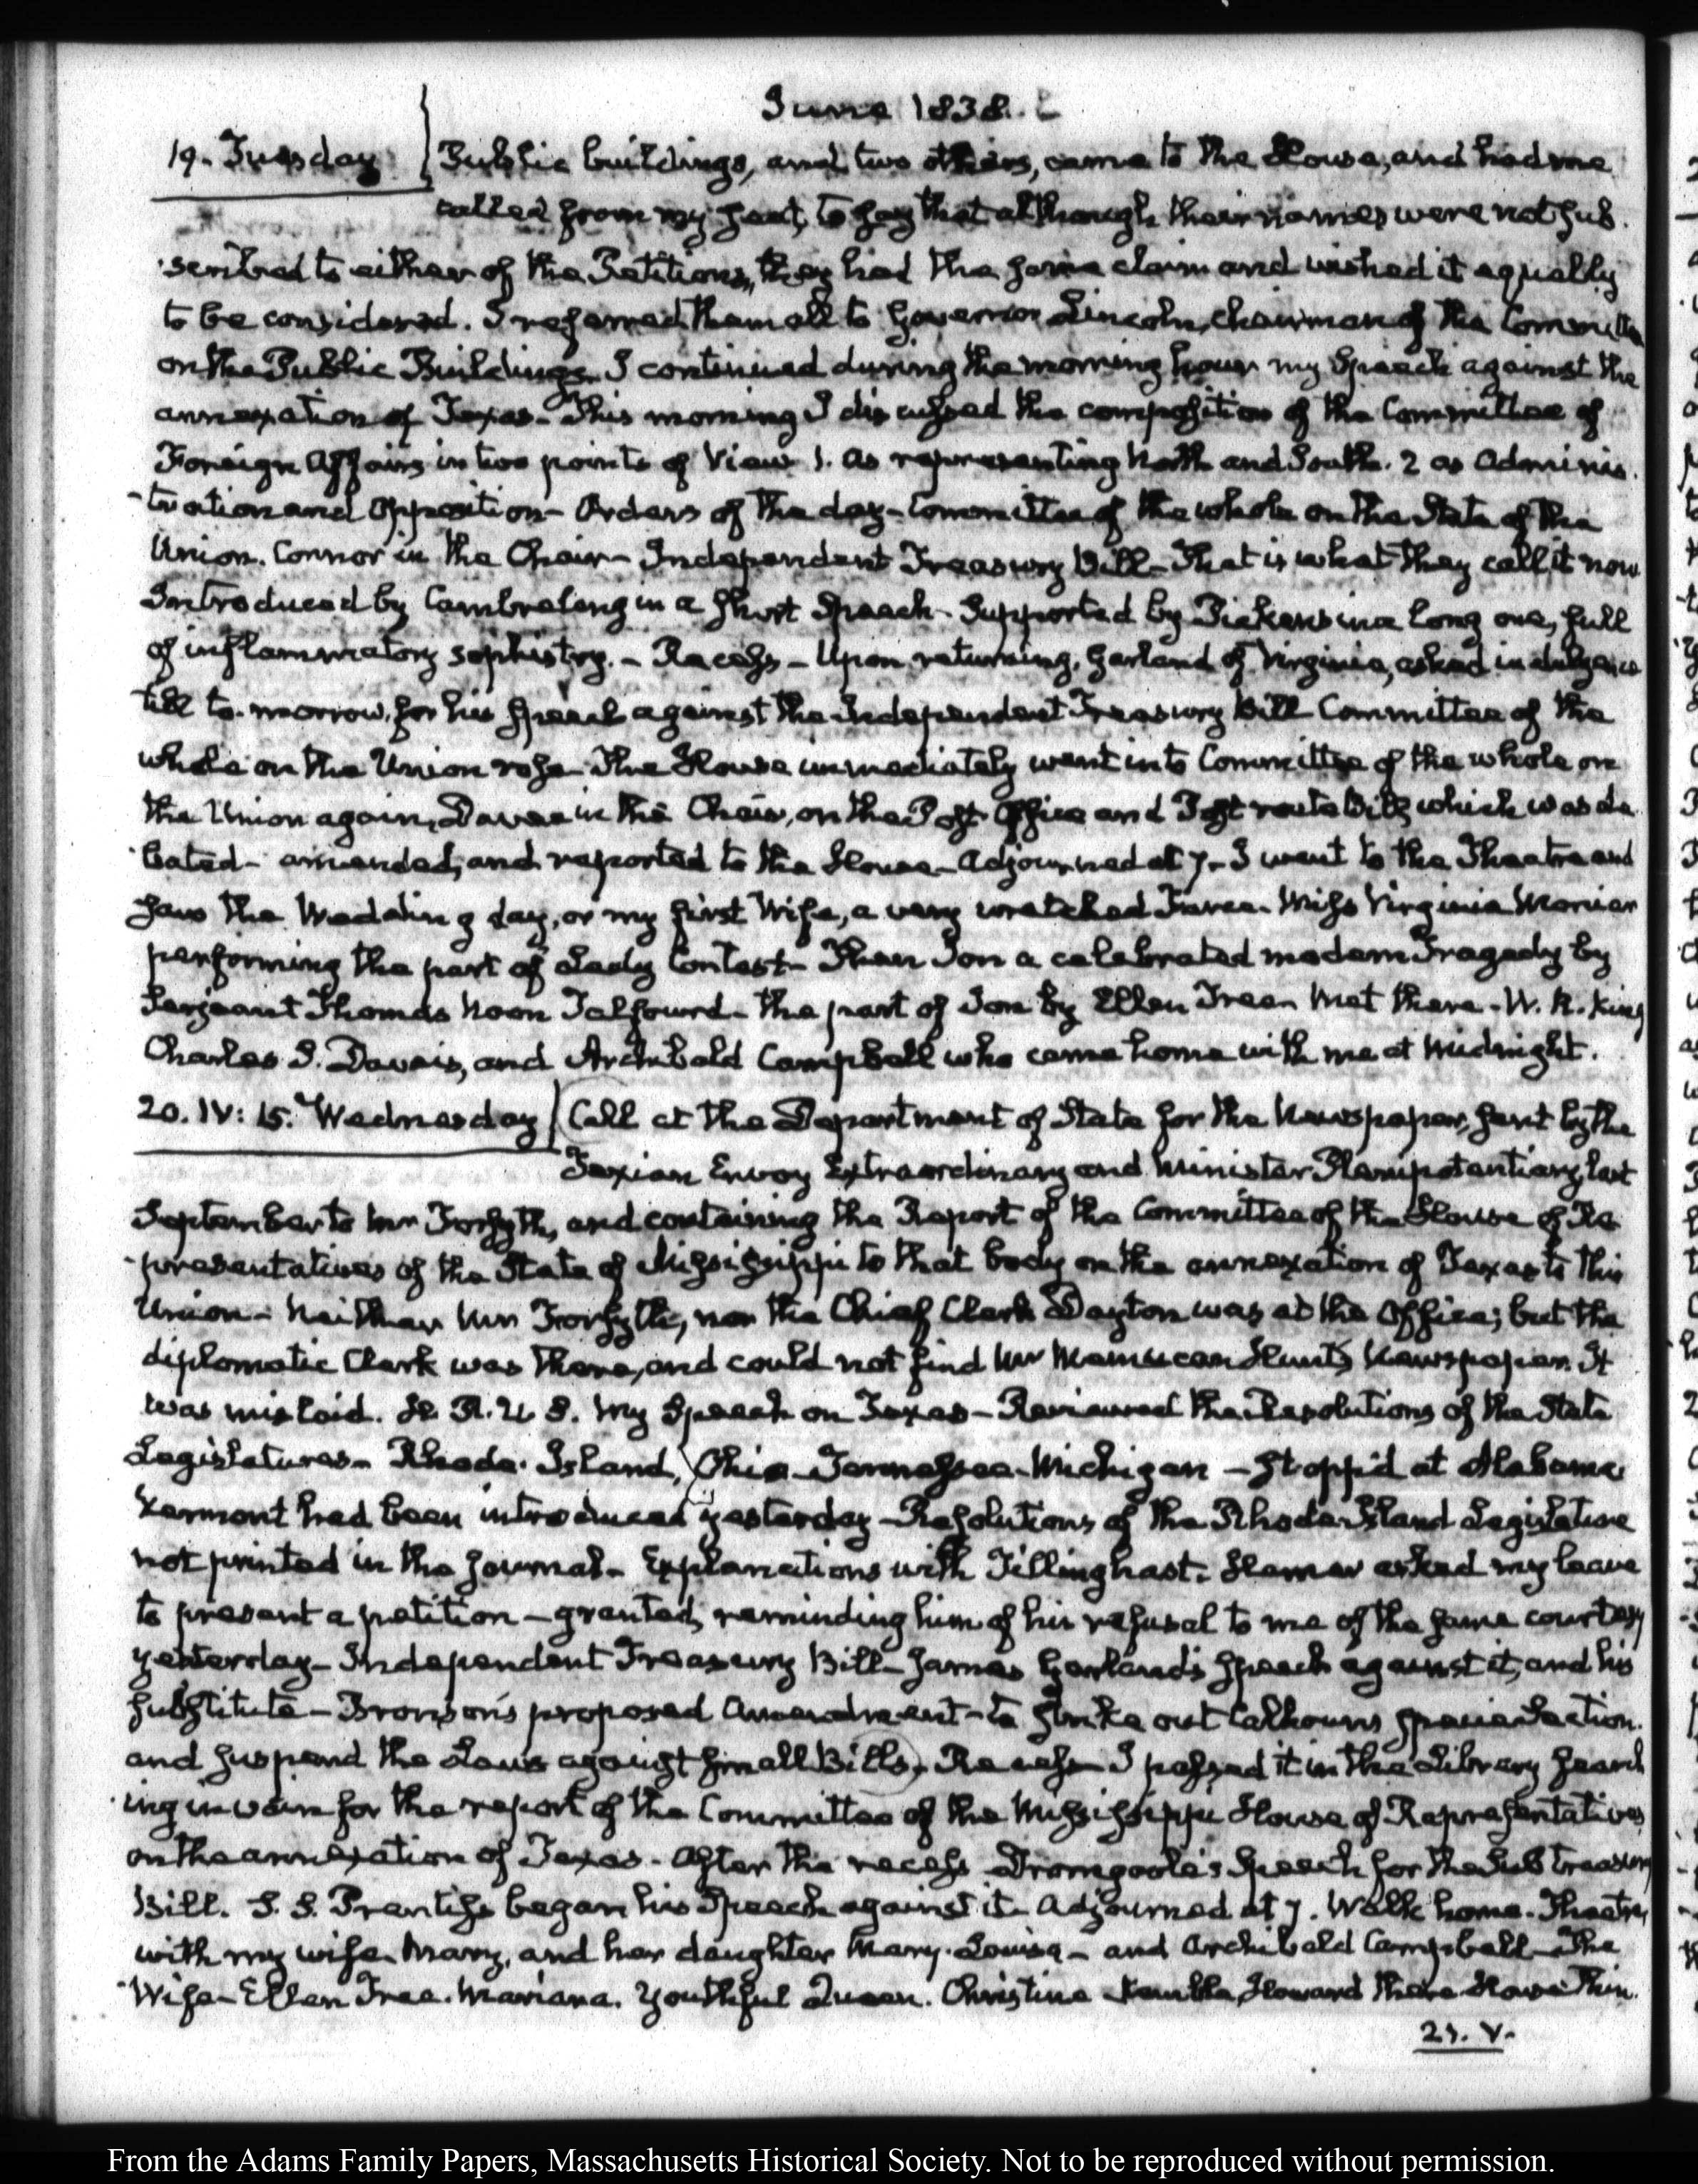 June 1838.
19. Tuesday Public buildings, and two others, came to the House, and had me
called from my seat, to say that although their names were not sub-
-scribed to either of the Petitions, they had the same claim and wished it equally
to be considered. I referred them all to Governor Lincoln, chairman of the Committee
on the Public Buildings. I continued during the morning hour my Speech against the
annexation of Texas. This morning I discussed the composition of the Committee of
Foreign Affairs in two points of View 1. as representing North and South. 2 as Adminis-
-tration and Opposition- Orders of the day- Committee of the whole on the State of the
Union. Connor in the Chair- Independent Treasury Bill- That is what they call it now
Introduced by Cambreleng in a short Speech- Supported by Pickens in a long one, full
of inflammatory sophistry. - Recess - Upon returning, Garland of Virginia, asked indulgence
till to-morrow, for his speech against the Independent Treasury Bill Committee of the
whole on the Union rose- The House immediately went into Committee of the whole on
the Union again, Davee in the Chair, on the Post Office and Post route Bill, which was de-
-bated- amended, and reported to the House- Adjourned at 7- I went to the Theatre and
saw the Wedding day, or my first Wife, a very wretched Farce. Miss Virginia Monier
performing the part of Lady Contest- Then Ion a celebrated modern Tragedy by
Serjeant Thomas Noon Talfourd- the part of Ion by Ellen Tree- Met there- W. R. King
Charles S. Daveis, and Archibald Campbell who came home with me at Midnight.
20. IV: 15. Wednesday Call at the Department of State for the Newspaper, sent by the
Texian Envoy Extraordinary and Minister Plenipotentiary, last
September to Mr Forsyth, and containing the Report of the Committee of the House of Re-
-presentatives of the State of Mississippi to that body on the annexation of Texas to this
Union- Neither Mr Forsyth, nor the Chief Clerk Dayton was at the Office; but the
diplomatic Clerk was there, and could not find Mr Memucan Hunt's Newspaper. It
was mislaid. H. R. U. S. My Speech on Texas- Reviewed the Resolutions of the State
Legislatures- Rhode-Island, Ohio- Tennessee- Michigan - Stopp'd at Alabama
Vermont had been introduced yesterday- Resolutions of the Rhode Island Legislature
not printed in the journal- Explanations with Tillinghast- Hamer asked my leave
to present a petition - granted, reminding him of his refusal to me of the same courtesy
yesterday- Independent Treasury Bill- James Garland's speech against it, and his
substitute- Bronson's proposed Amendment- to strike out Calhoun's specie Section.
and suspend the Laws against small Bills. Recess- I passed it in the Library search-
-ing in vain for the report of the Committee of the Mississippi House of Representatives
on the annexation of Texas- After the recess Dromgoole's Speech for the Sub treasury
Bill. S. S. Prentiss began his Speech against it- Adjourned at 7. Walk home- Theatre,
with my wife- Mary, and her daughter Mary-Louisa- and Archibald Campbell- The
Wife- Ellen Tree. Mariana. Youthful Queen. Christine Howard there House thin.
21. V.
From the Adams Family Papers, Massachusetts Historical Society. Not to be reproduced without permission.